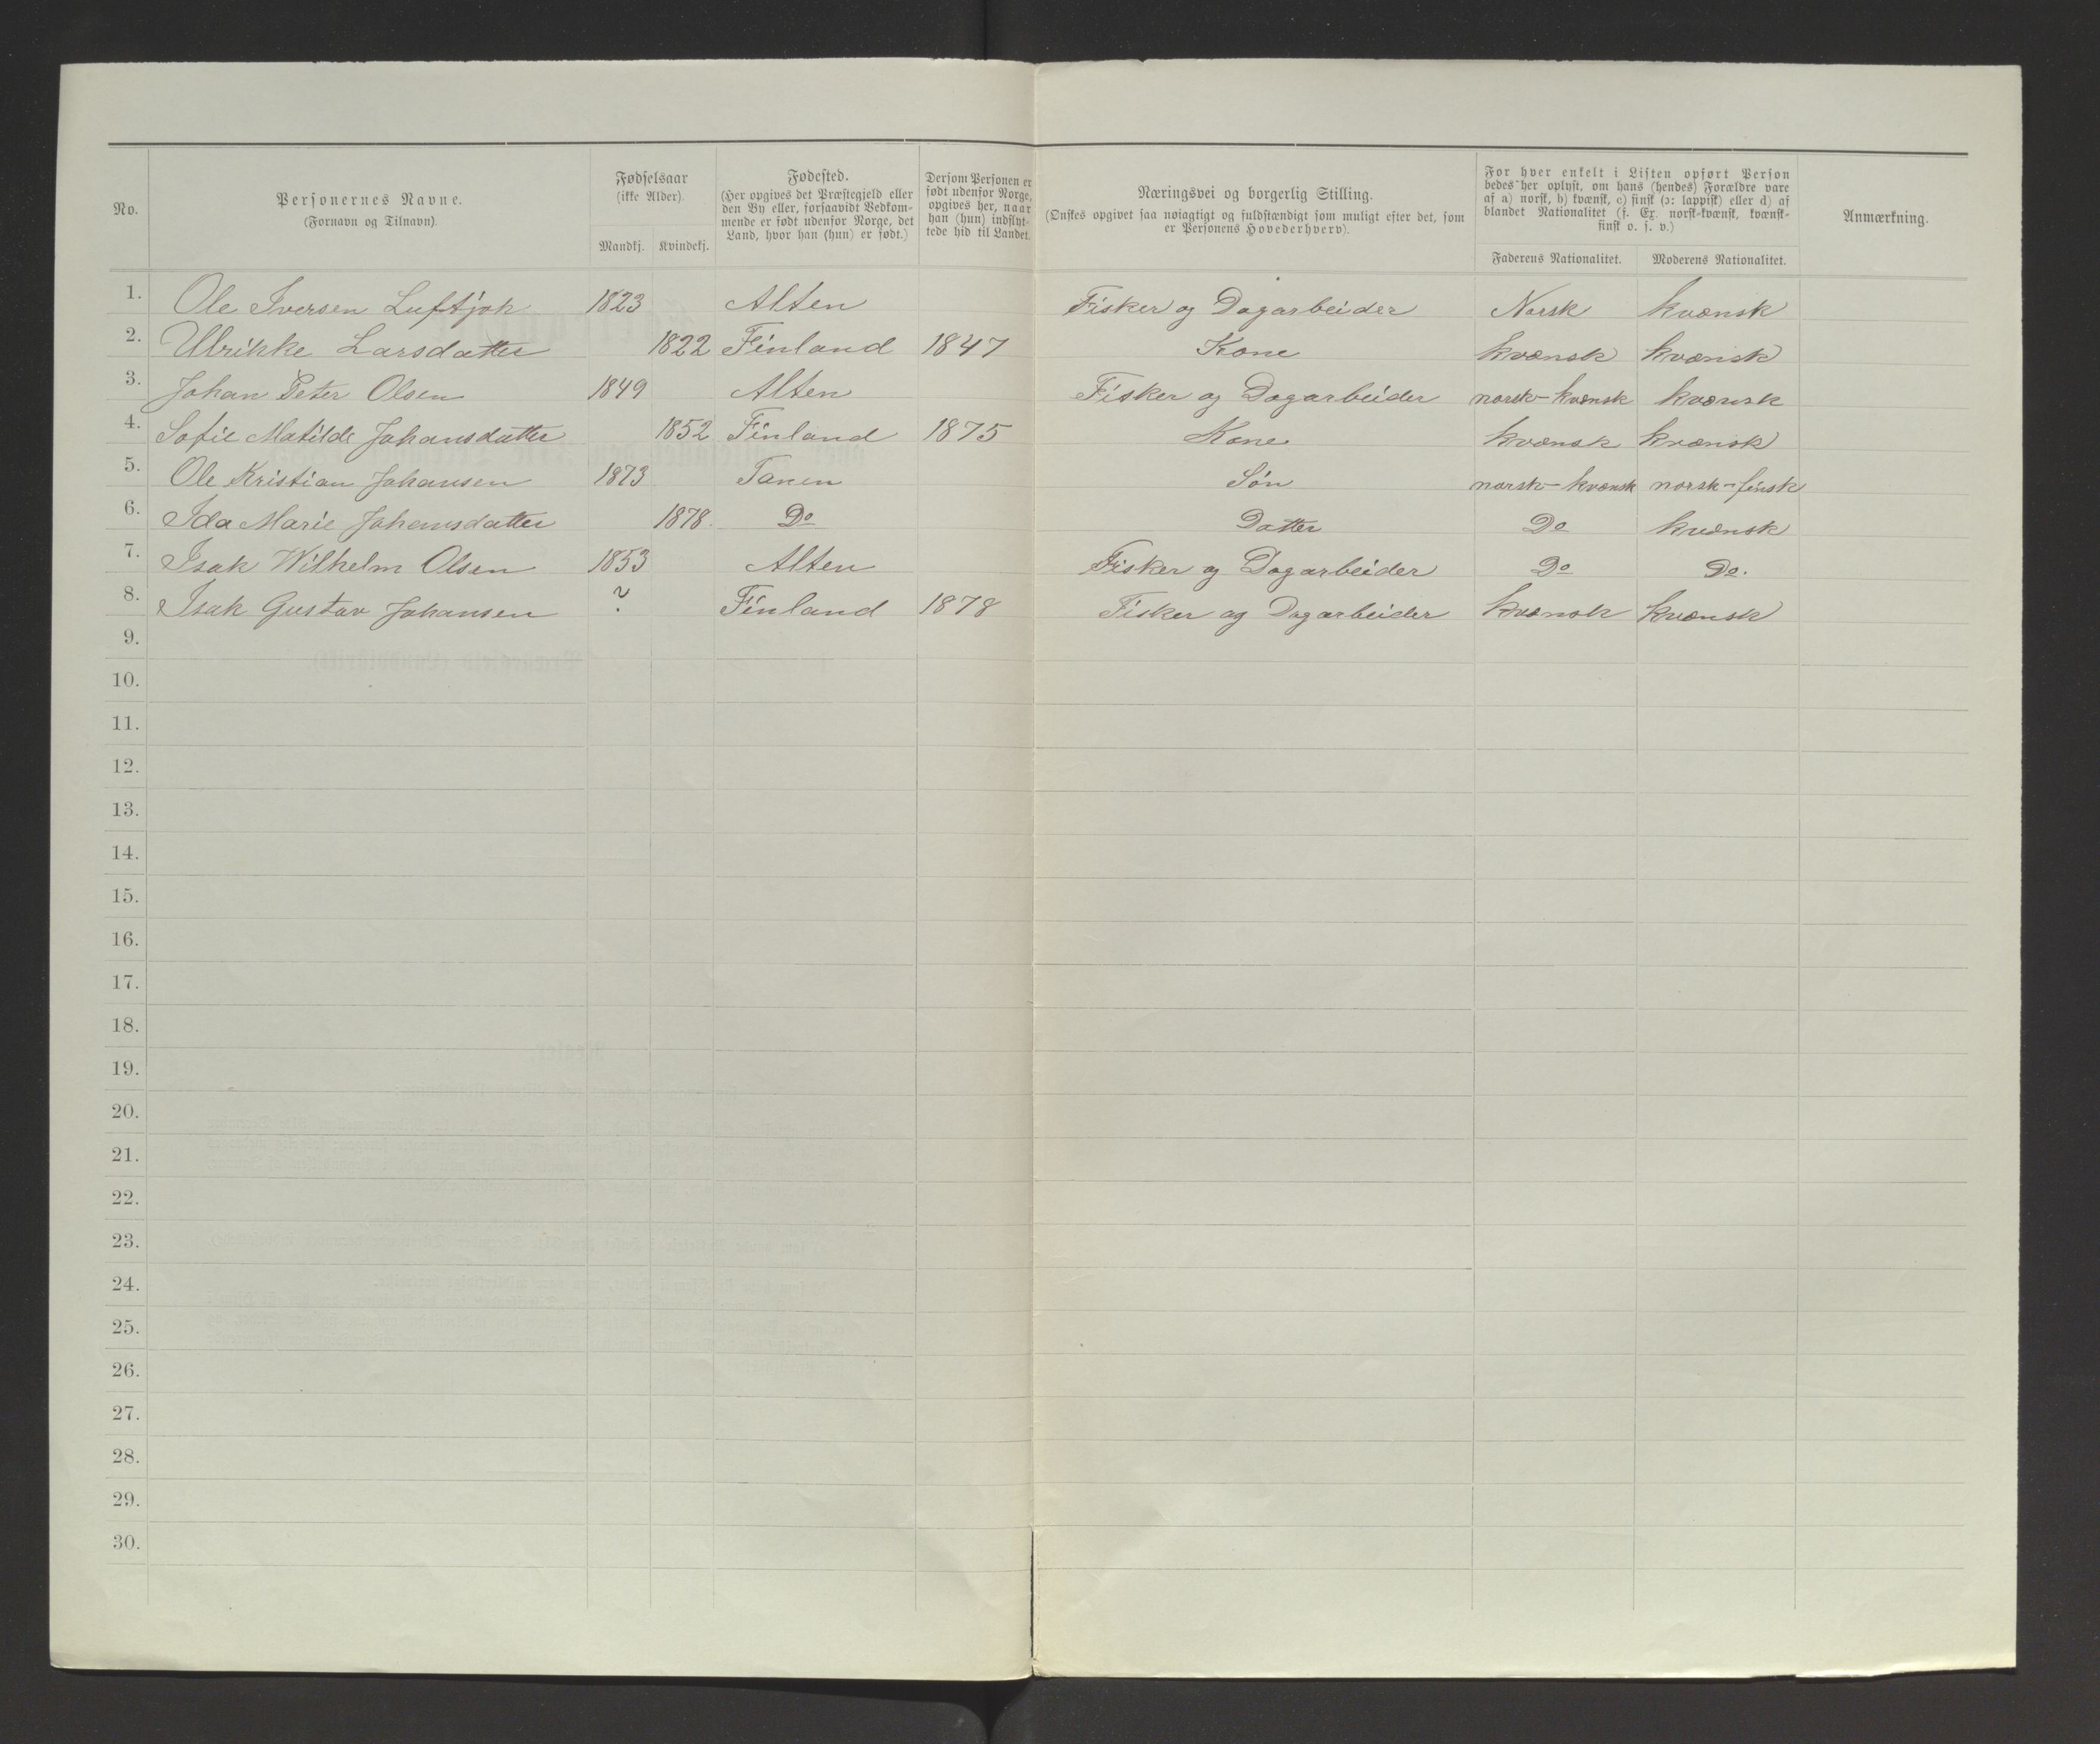 No.
Personernes Navne.
(Fornavn og Tilnavn).
Fødselsaar
(ikke Alder).
Mandkj. Kvindekj.
Fødested.
(Her opgives det Præstegjeld eller
den By eller, forsaavidt Vedkom-
mende er født udenfor Norge, det
Land, hvor han (hun) er født.)
Dersom Personen er
født udenfor Norge,
opgives her, naar
han (hun) indflyt-
tede hid til Landet.
Næringsvei og borgerlig Stilling.
(Ønskes opgivet saa nøiagtigt og fuldstændigt som muligt efter det, som
er Personens Hovederhverv).
For hver enkelt i Listen opført Person
bedes her oplyst, om hans (hendes) Forældre vare
af a) norsk, b) kvænsk, c) finsk (ɔ: lappisk) eller d) af
blandet Nationalitet (f. Ex. norsk-kvænsk, kvænsk-
finsk o. s. v.)
Faderens Nationalitet. Moderens Nationalitet.
Anmærkning.
1. Ole Iversen Luftjok 1823 Alten Fisker og Dagarbeider Norsk kvænsk
2. Ulrikke Larsdatter 1822 Finland 1847 Kone kvænsk kvænsk
3. Johan Peter Olsen 1849 Alten Fisker og Dagarbeider norsk-kvænsk kvænsk
4. Sofie Matilde Johansdatter 1852 Finland 1875 Kone kvænsk kvænsk
5. Ole Kristian Johansen 1873 Tanen Søn norsk-kvænsk norsk-finsk
6. Ida Marie Johansdatter 1878 Do Datter Do kvænsk
7. Isak Wilhelm Olsen 1853 Alten Fisker og Dagarbeider Do Do.
8. Isak Gustav Johansen ? Finland 1878 Fisker og Dagarbeider kvænsk kvænsk
9.
10.
11.
12.
13.
14.
15.
16.
17.
18.
19.
20.
21.
22.
23.
24.
25.
26.
27.
28.
29.
30.